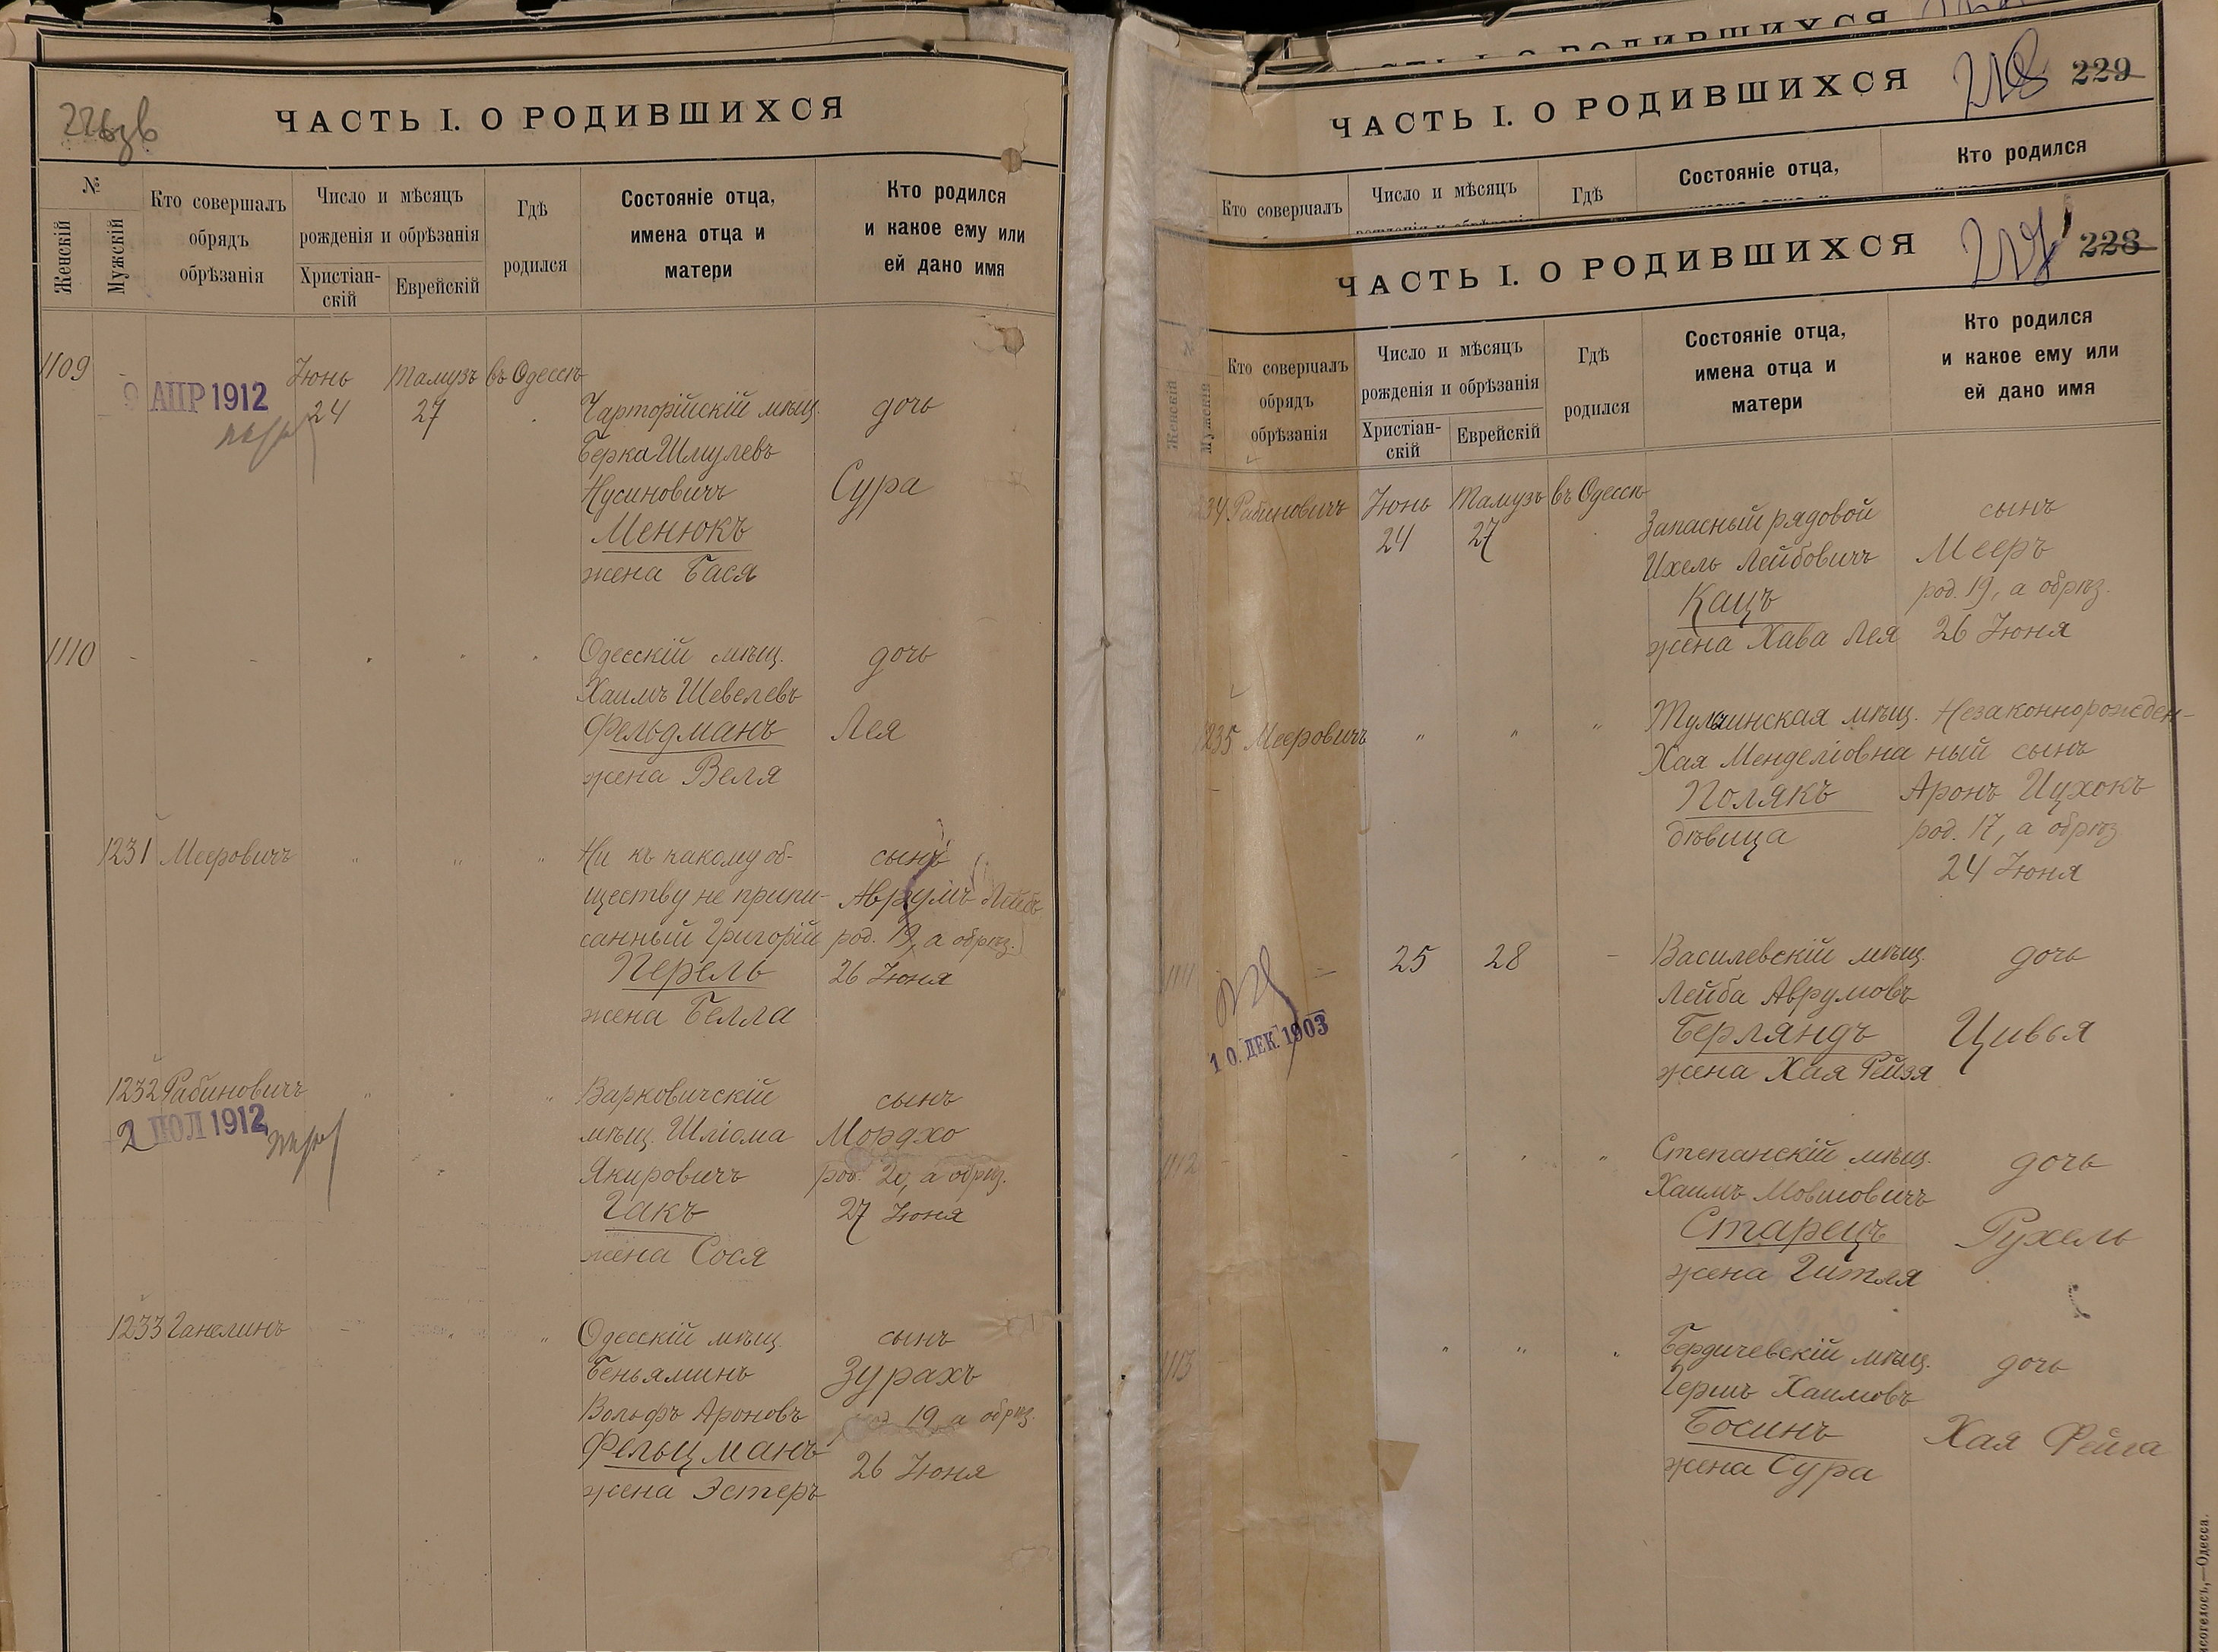 ЧАСТЬ I. О РОДИВШИХСЯ
№
Женскій
Мужскій
Кто совершалъ
обрядъ
обрѣзанія
Число и мѣсяцъ
рожденія и обрѣзанія
Христіан-
скій
Еврейскій
Гдѣ
родился
Состояніе отца,
имена отца и
матери
Кто родился
и какое ему или
ей дано имя
1109
9 АПР 1912
Іюнь Тамузъ въ Одессѣ
24 27
Чарторійскій мѣщ. дочь
Берка Шмулевъ
Нусиновичъ Сура
Менюкъ
жена Бася
1110
Одесскій мѣщ. дочь
Хаимъ Шевелевъ
Фельдманъ Лея
жена Веля
1231 Мееровичъ " " " Ни къ какому об- сынъ
ществу не припи- Аврумъ Лейбъ
санный Григорій род. 19, а обрѣз.
Перель 26 Іюня
жена Белла
1232 Рабиновичъ " " Варковичскій сынъ
2 ІЮЛ 1912
мѣщ. Шліома Мордхо
Якировичъ род. 20, а обрѣз.
Гакъ 27 Іюня
жена Сося
1233 Ганелинъ " " Одесскій мѣщ. сынъ
Беньяминъ Зурахъ
Вольфъ Ароновъ род 19 а обрѣз.
Фельцманъ 26 Іюня
жена Эстеръ
ЧАСТЬ I. О РОДИВШИХСЯ
218 229
Кто совершалъ
Число и мѣсяцъ
Гдѣ
Состояніе отца,
Кто родился
ЧАСТЬ I. О РОДИВШИХСЯ
217 228
Женскій
Мужскій
Кто совершалъ
обрядъ
обрѣзанія
Число и мѣсяцъ
рожденія и обрѣзанія
Христіан-
скій
Еврейскій
Гдѣ
родился
Состояніе отца,
имена отца и
матери
Кто родился
и какое ему или
ей дано имя
34 Рабиновичъ Іюнь Тамузъ въ Одессѣ
24 27
Запасный рядовой сынъ
Ихель Лейбовичъ Мееръ
Кацъ род. 19, а обрѣз.
жена Хава Лея 26 Іюня
1235 Мееровичъ " " " Тульчинская мѣщ. Незаконнорожден-
Хая Менделіовна ный сынъ
Полякъ Аронъ Ицхокъ
дѣвица род. 17, а обрѣз.
24 Іюня
1111 25 28 Василевскій мѣщ. дочь
Лейба Аврумовъ
10. ДЕК. 1903
Берляндъ Цивья
жена Хая Рейзя
1112 " Степанскій мѣщ. дочь
Хаимъ Мовшовичъ
Старецъ Рухель
жена Гитля
1113 " " " Бердичевскій мѣщ. дочь
Гершъ Хаимовъ
Босинъ Хая Фейга
жена Сура